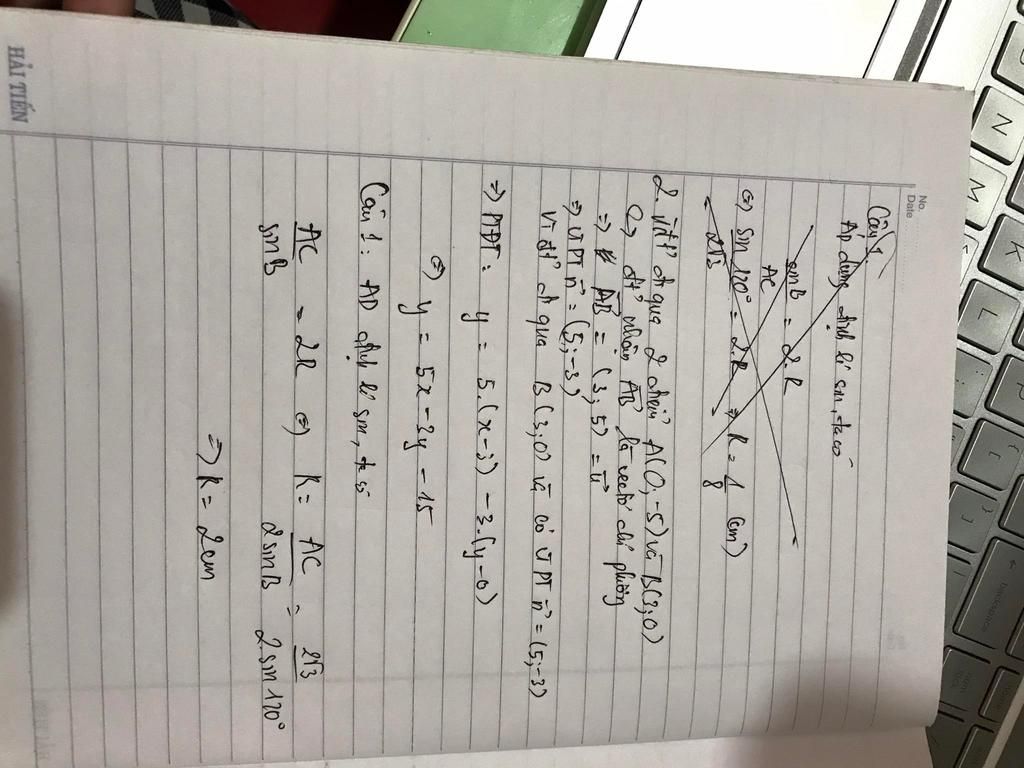 No.
Date
Câu 1
Áp dụng định lí sin, ta có
AC
sinB = 2.R
⇔ sin 120° = 2.R ⇒ R = 1/8 (cm)
2√3
2. Vì đt² đi qua 2 điểm A(0,-5) và B(3;0)
↪ đt² nhận AB là vectơ chỉ phương
⇒ AB = (3;5) = u
⇒ VTPT n = (5;-3)
Vì đt² đi qua B(3;0) và có VTPT n = (5;-3)
⇒ PTĐT: y = 5.(x-3) - 3.(y-0)
⇔ y = 5x - 3y - 15
Câu 1: AD định lí sin, ta có
AC/sinB = 2R ⇔ R = AC/2sinB = 2√3/2sin120°
⇒ R = 2cm
HẢI TIẾN
Z
M
K
L
backspace